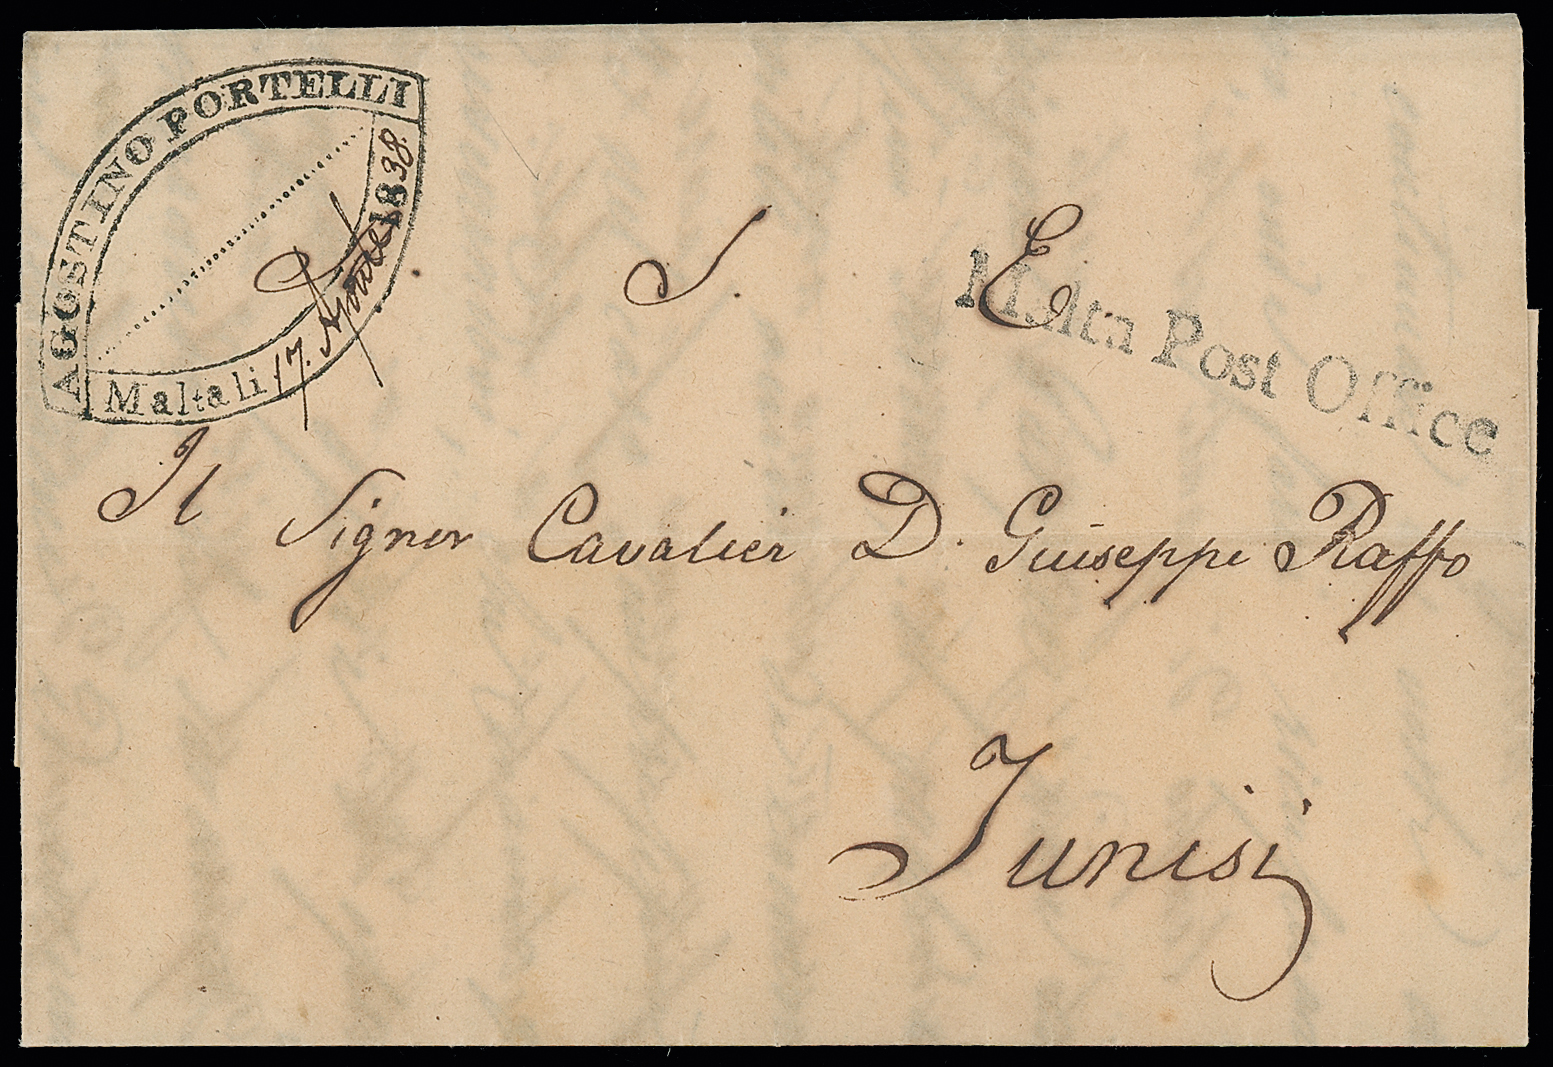 AGOSTINO PORTELLI
Malta li 17. Agosto 1838
S. E.
Malta Post Office
Il Signor Cavalier D. Giuseppe Raffo
Tunisi